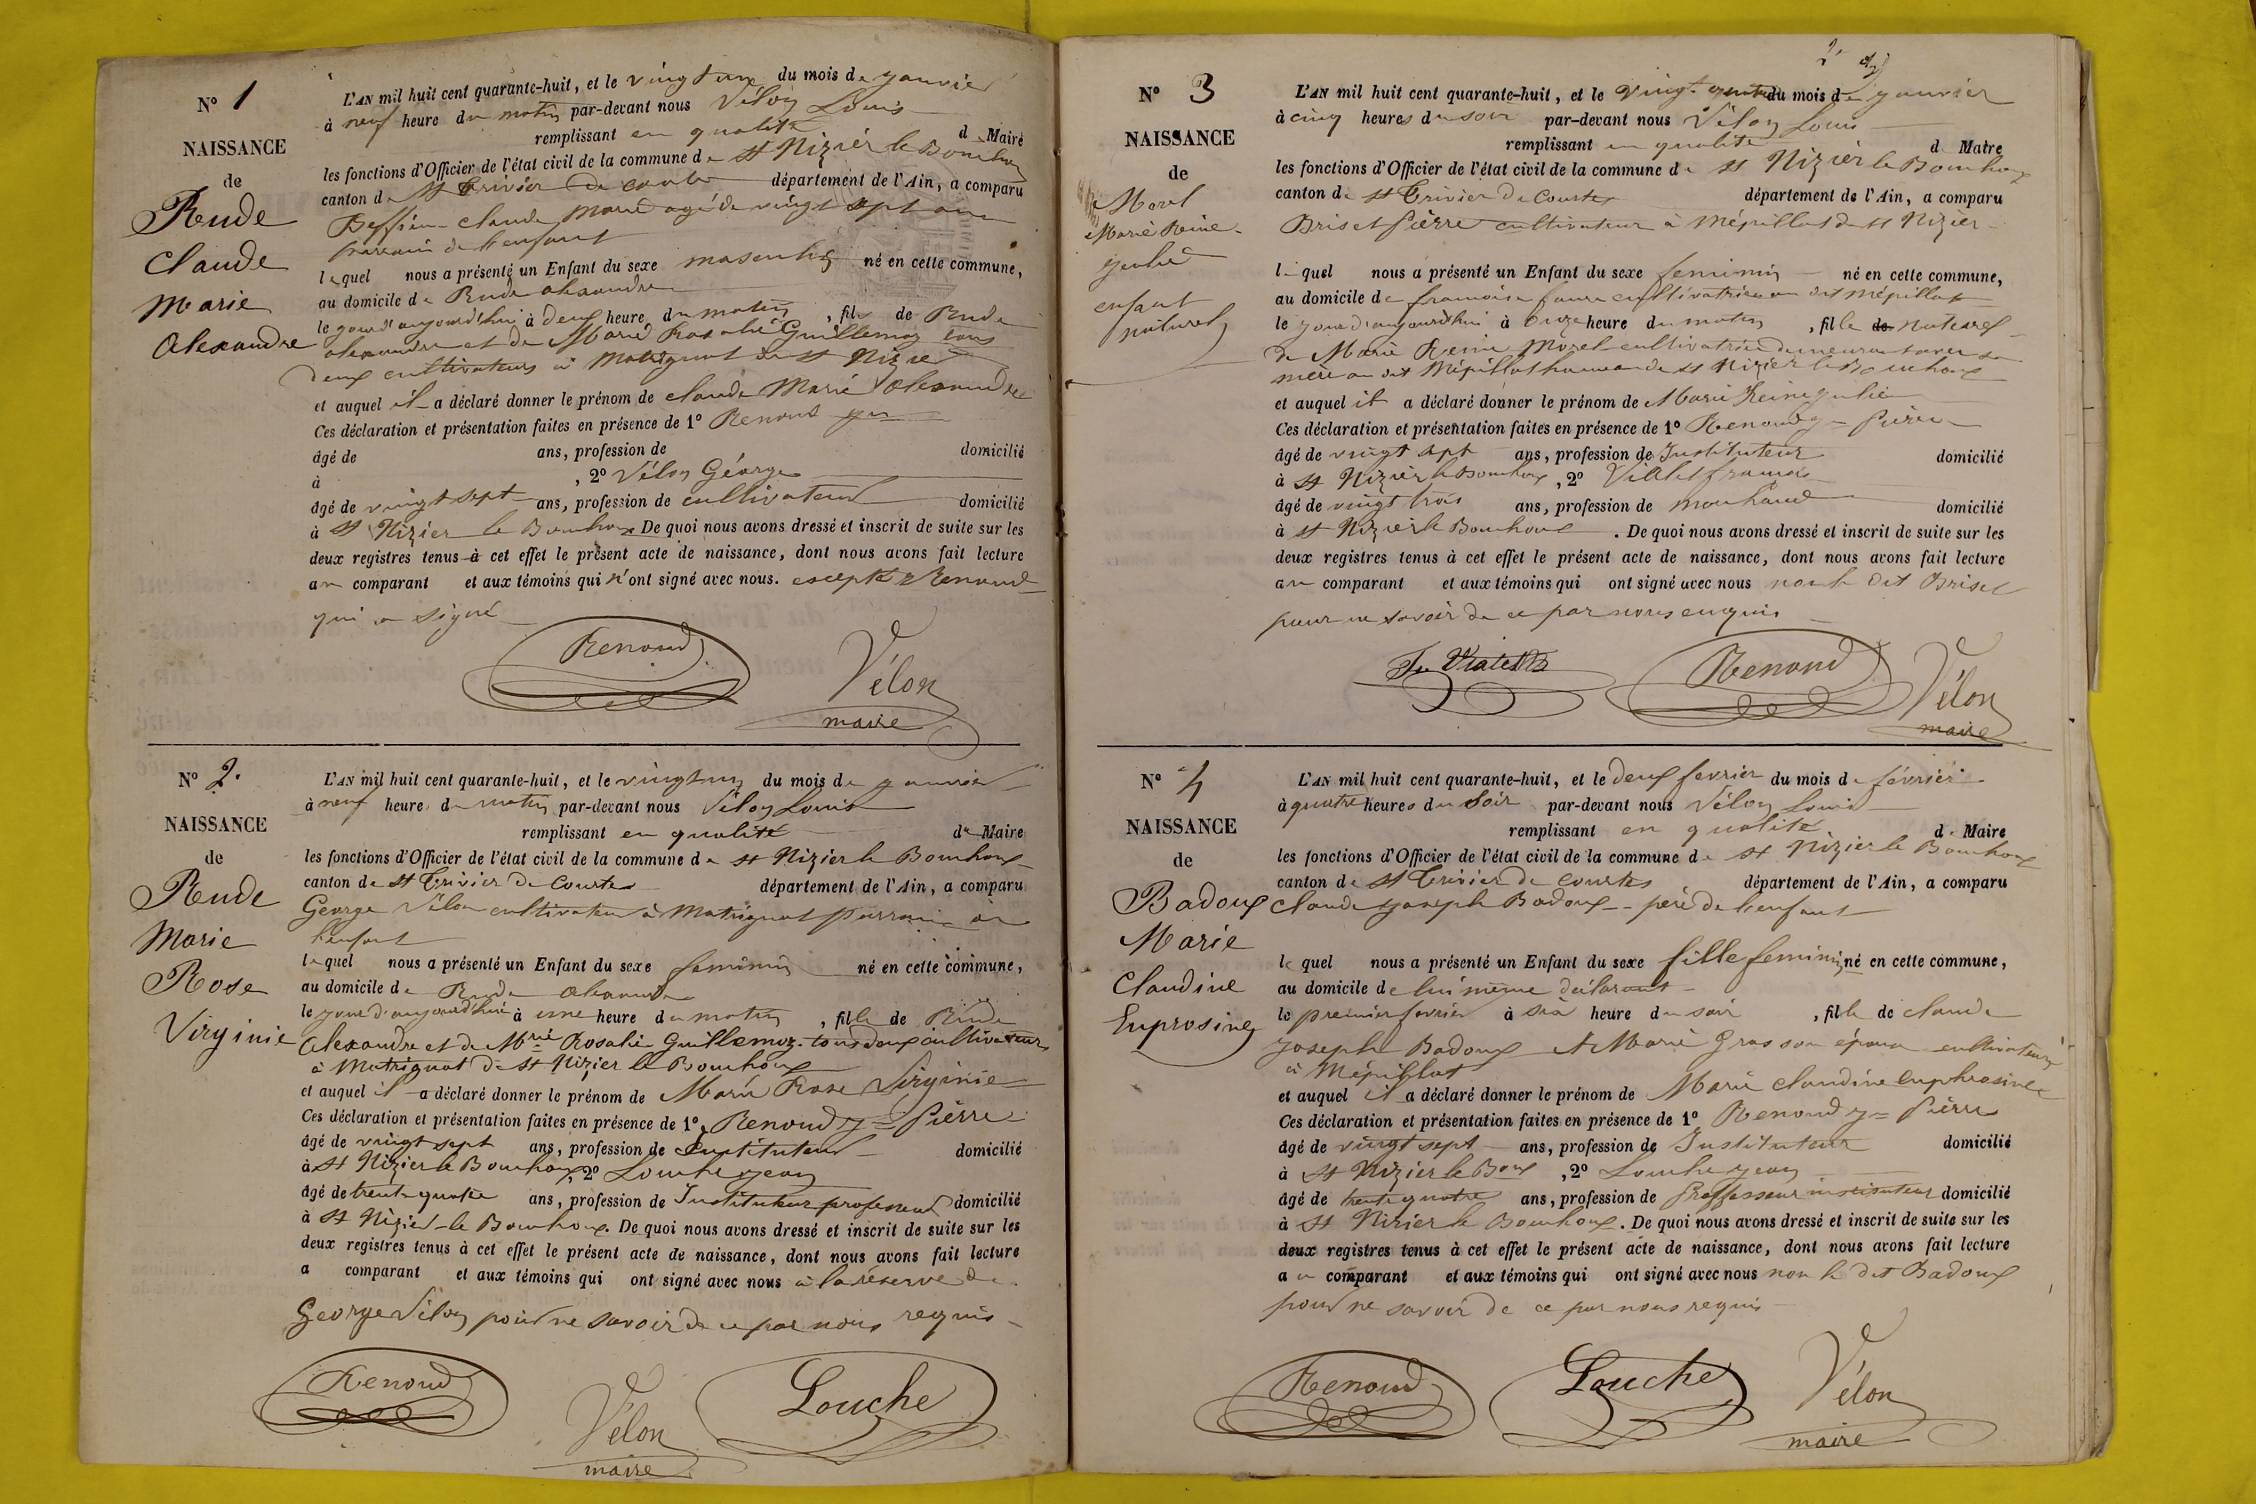 N° 1
NAISSANCE
de
Rude
Claude
Marie
Alexandre
L'AN mil huit cent quarante-huit, et le vingt un du mois de janvier
à neuf heure du matin par-devant nous Vélon Louis
remplissant en qualité d Maire
les fonctions d'Officier de l'état civil de la commune de St Nizier le Bouchoux
canton de St Trivier de Courtes département de l'Ain, a comparu
claude Marie agé de vingt sept ans
parrain de l'enfant
lequel nous a présenté un Enfant du sexe masculin né en cette commune,
au domicile de Rude alexandre
le jourd'aujourd'hui à deux heure du matin, fils de Rude
alexandre et de Marie Rosalie Guillemoz tous
deux cultivateurs à Matrignat de St Nizier
et auquel il a déclaré donner le prénom de claude Marie Alexandre
Ces déclaration et présentation faites en présence de 1° Renoud
âgé de ans, profession de domicilié
à , 2° Vélon George
âgé de vingt sept ans, profession de cultivateur domicilié
à St Nizier le Bouhoux De quoi nous avons dressé et inscrit de suite sur les
deux registres tenus à cet effet le présent acte de naissance, dont nous avons fait lecture
au comparant et aux témoins qui n'ont signé avec nous. excepté Renoud
qui a signé
Renoud
Vélon
maire
N° 2.
NAISSANCE
de
Rude
Marie
Rose
Virginie
L'AN mil huit cent quarante-huit, et le vingt un du mois de janvier
à neuf heure du matin par-devant nous Vélon Louis
remplissant en qualité de Maire
les fonctions d'Officier de l'état civil de la commune de St Nizier le Bouhoux
canton de St Trivier de Courtes département de l'Ain, a comparu
George Vélon cultivateur à Matrignat parrain de
l'enfant
lequel nous a présenté un Enfant du sexe feminin né en cette commune,
au domicile de Rude alexandre
le jour d'aujourd'hui à une heure du matin, fille de Rude
Alexandre et de Mrie Rosalie Guillemoz tous deux cultivateurs
à Matrignat de St Nizier le Bouhoux
et auquel il a déclaré donner le prénom de Marie Rose Virginie
Ces déclaration et présentation faites en présence de 1° Renoud Jn Pierre
âgé de vingt sept ans, profession de Instituteur domicilié
à St Nizier le Bouhoux, 2° Louche Jean
âgé de trente quatre ans, profession de Instituteur professeur domicilié
à St Nizier le Bouhoux. De quoi nous avons dressé et inscrit de suite sur les
deux registres tenus à cet effet le présent acte de naissance, dont nous avons fait lecture
a comparant et aux témoins qui ont signé avec nous à la réserve de
George Vélon pour ne savoir de ce par nous requis
Renoud
Vélon
maire
Louche
2e
N° 3
NAISSANCE
de
Morel
Marie Reine
Julie
enfant
naturel
L'AN mil huit cent quarante-huit, et le vingt quatre du mois de janvier
à cinq heures du soir par-devant nous Vélon Louis
remplissant en qualité d Maire
les fonctions d'Officier de l'état civil de la commune de St Nizier le Bouhoux
canton de St Trivier de Courtes département de l'Ain, a comparu
Briset Pierre cultivateur à Mépillat de St Nizier
lequel nous a présenté un Enfant du sexe feminin né en cette commune,
au domicile de francoise faure cultivatrice au dit Mépillat
le jour d'aujourd'hui à onze heure du matin, fille de naturel
de Marie Reine Morel cultivatrice demeurant avec sa
mère au dit Mépillat hameau de St Nizier le Bouchoux
et auquel il a déclaré donner le prénom de Marie Reine Julie
Ces déclaration et présentation faites en présence de 1° Renoud Jn Pierre
âgé de vingt sept ans, profession de Instituteur domicilié
à St Nizier le Bouhoux, 2° Vialet francois
âgé de vingt trois ans, profession de marchand domicilié
à St Nizier le Bouhoux. De quoi nous avons dressé et inscrit de suite sur les
deux registres tenus à cet effet le présent acte de naissance, dont nous avons fait lecture
au comparant et aux témoins qui ont signé avec nous non le dit Briset
pour ne savoir de ce par nous enquis
Renoud
Vélon
maire
N° 4
NAISSANCE
de
Badoux
Marie
Claudine
Euprosine
L'AN mil huit cent quarante-huit, et le deux fevrier du mois de février
à quatre heures du soir par-devant nous Vélon Louis
remplissant en qualité d Maire
les fonctions d'Officier de l'état civil de la commune de St Nizier le Bouhoux
canton de St Trivier de Courtes département de l'Ain, a comparu
Claude Joseph Badoux père de l'enfant
lequel nous a présenté un Enfant du sexe fille feminin né en cette commune,
au domicile de lui même déclarant
le premier fevrier à six heure du soir, fille de claude
Joseph Badoux et Marie Gras son épouse cultivateurs
à Mépillat
et auquel il a déclaré donner le prénom de Marie claudine euphrosine
Ces déclaration et présentation faites en présence de 1° Renoud Jn Pierre
âgé de vingt sept ans, profession de Instituteur domicilié
à St Nizier le Boux, 2° Louche Jean
âgé de trente quatre ans, profession de Proffesseur instituteur domicilié
à St Nizier le Bouhoux. De quoi nous avons dressé et inscrit de suite sur les
deux registres tenus à cet effet le présent acte de naissance, dont nous avons fait lecture
au comparant et aux témoins qui ont signé avec nous non le dit Badoux
pour ne savoir de ce par nous requis
Renoud
Louche
Vélon
maire